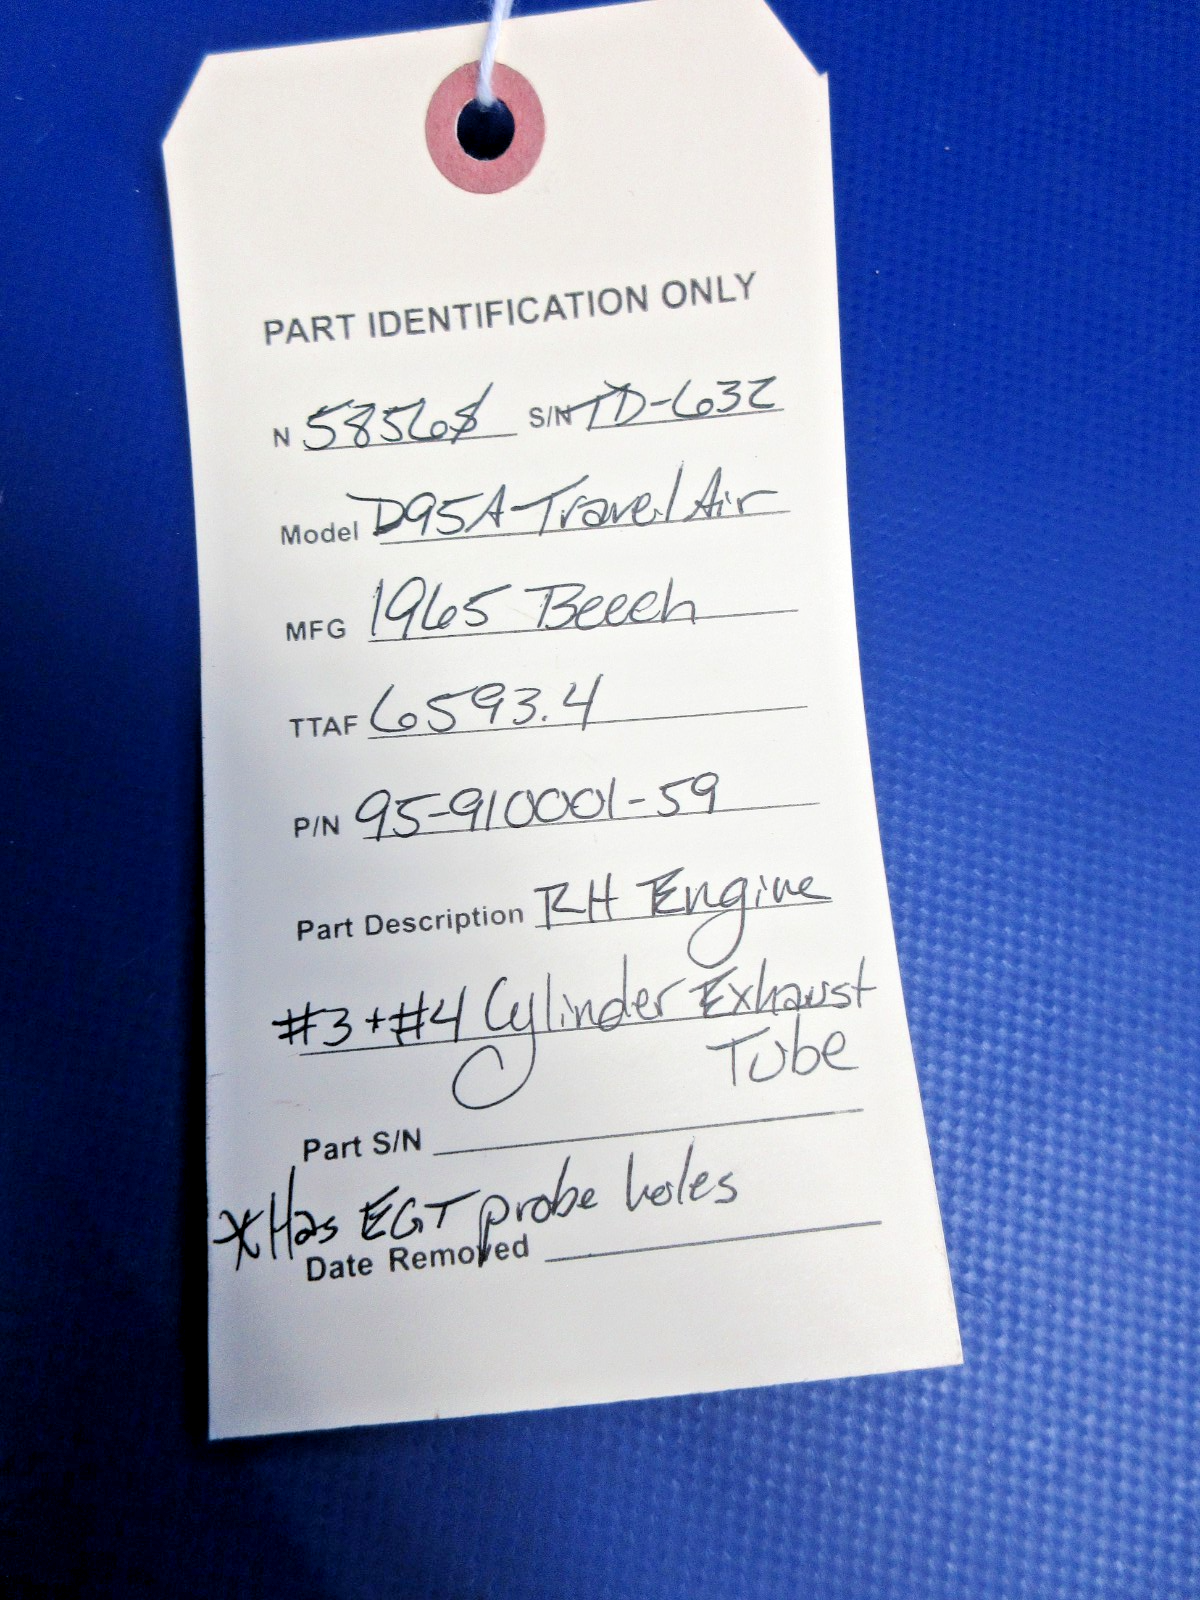 PART IDENTIFICATION ONLY
N 5856S S/N TD-632
Model D95A-Travel Air
MFG 1965 Beech
TTAF 6593.4
P/N 95-910001-59
Part Description RH Engine
#3+#4 Cylinder Exhaust
Tube
Part S/N
*Has EGT probe holes
Date Removed